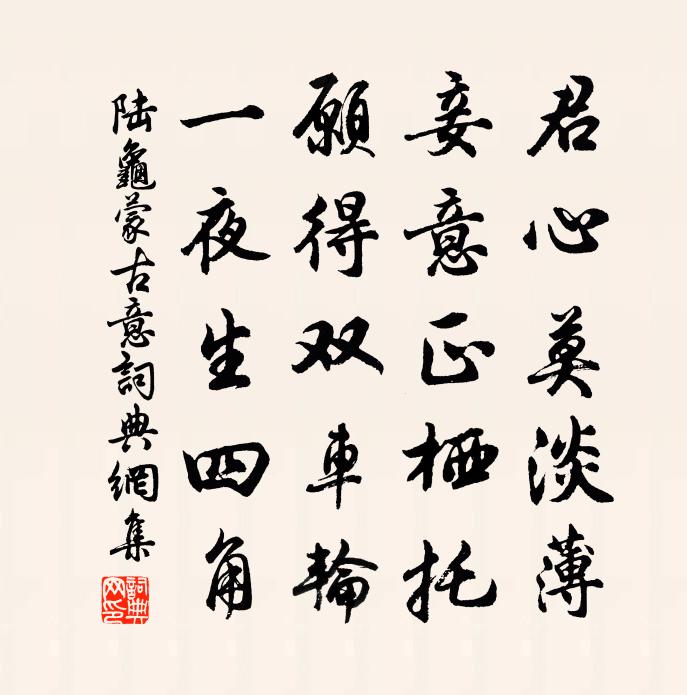 君心莫淡薄
妾意正栖托
願得双車輪
一夜生四角
陸龜蒙古意詞典網集
詞典网印